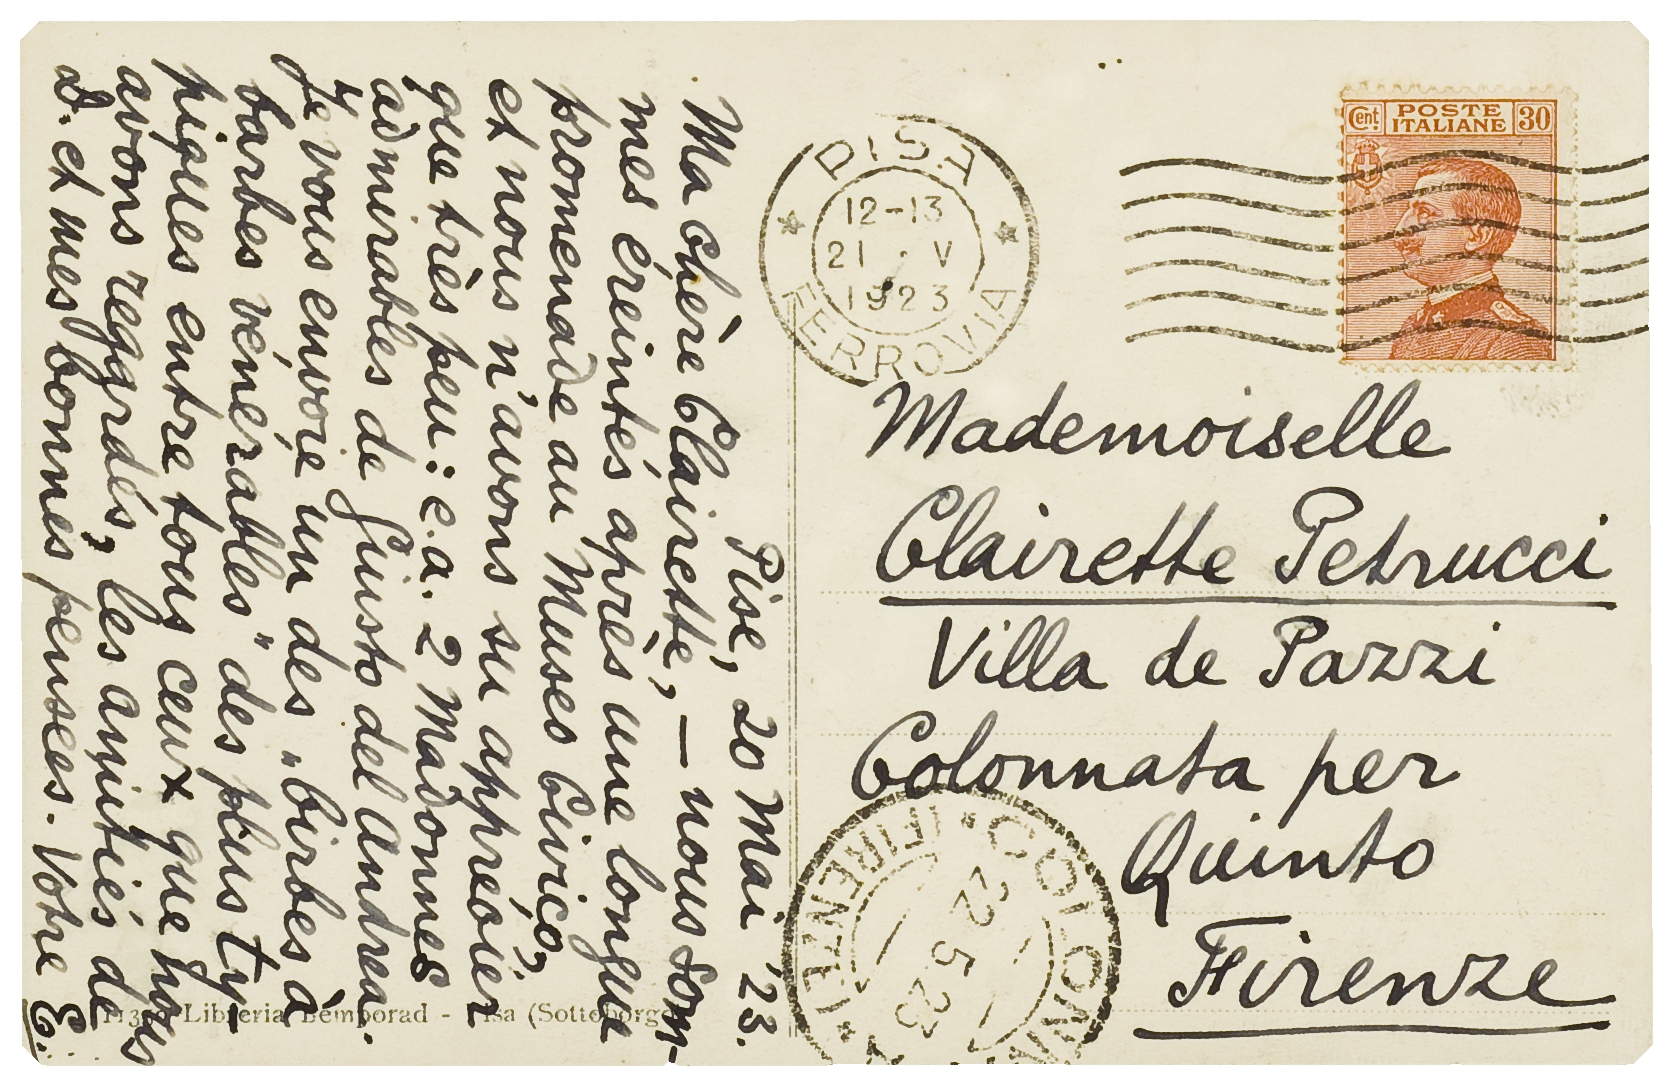 Pise, 20 Mai '23.
Ma chère Clairette, — nous som-
mes éreintés après une longue
promenade au Museo Civico,
et nous n'avons su apprécier
que très peu: e.a. 2 Madonnes
admirables de Giusto del Andrea.
Je vous envoie un des „birbes à
barbes vénérables" des plus ty-
piques entre tous ceux que nous
avons reggrdés, les amitiés de
A. et mes bonnes pensées. Votre E.
PISA
12-13
21 · V
1923
FERROVIA
Cent. POSTE ITALIANE 30
Mademoiselle
Clairette Petrucci
Villa de Pazzi
Colonnata per
Quinto
Firenze
22 5 23
Libreria Bemporad - Pisa (Sottoborgo